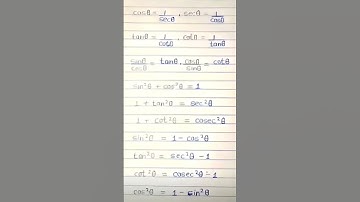 cosθ = 1/secθ , secθ = 1/cosθ
tanθ = 1/cotθ , cotθ = 1/tanθ
sinθ/cosθ = tanθ , cosθ/sinθ = cotθ
sin²θ + cos²θ = 1
1 + tan²θ = sec²θ
1 + cot²θ = cosec²θ
sin²θ = 1 - cos²θ
tan²θ = sec²θ - 1
cot²θ = cosec²θ - 1
cos²θ = 1 - sin²θ